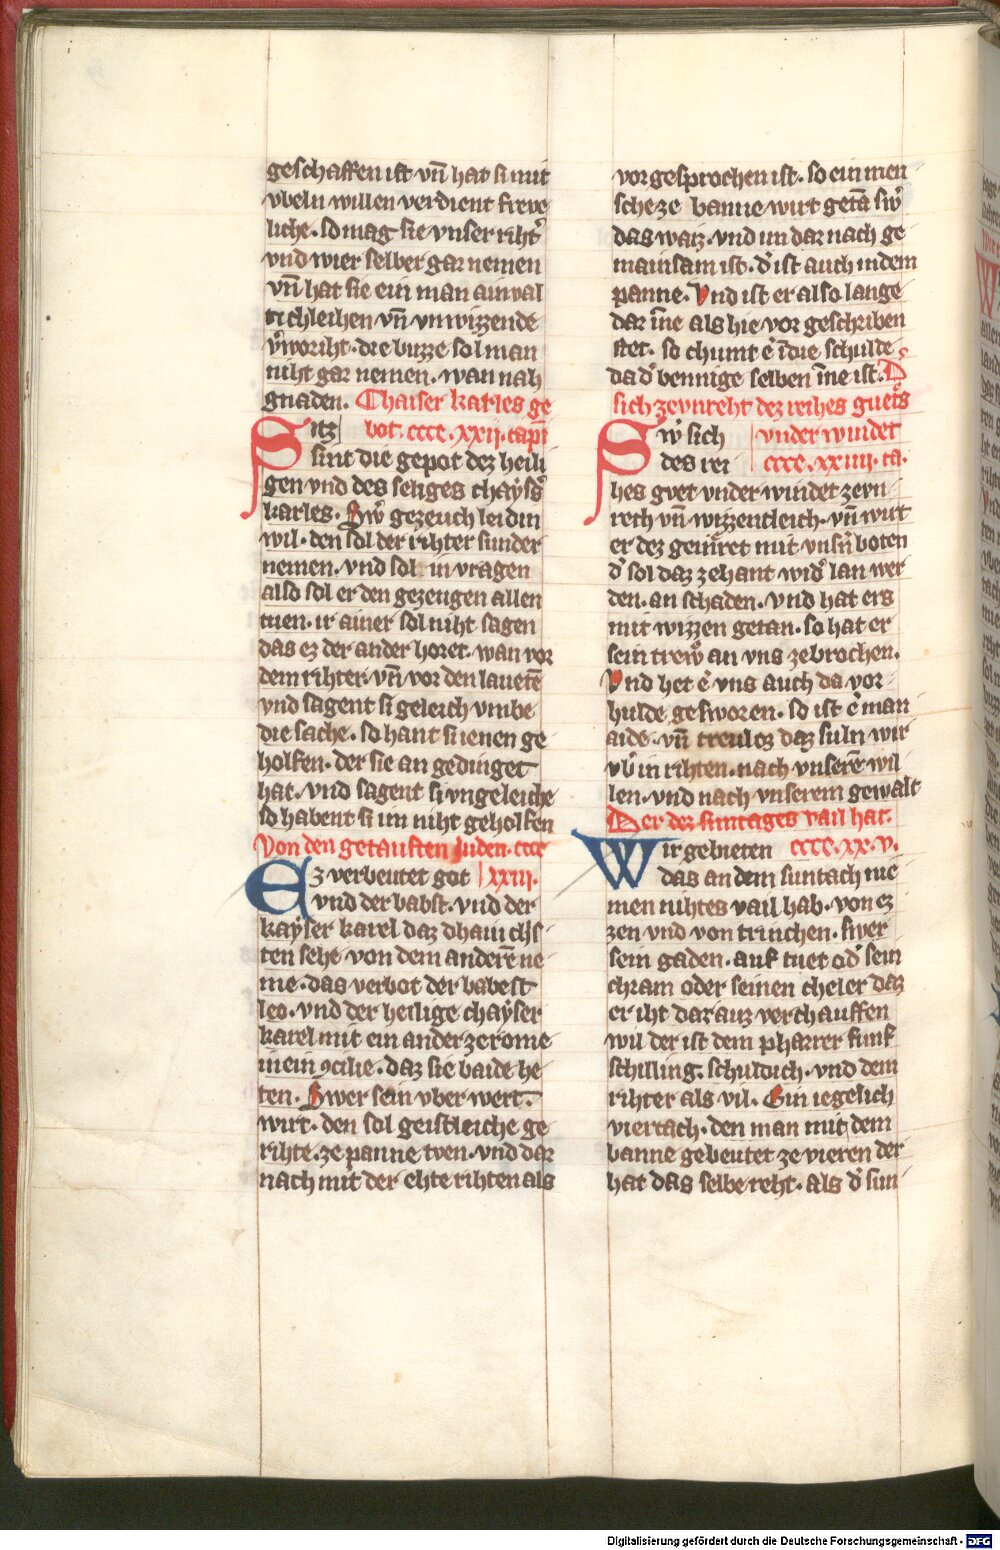 geschaffen ist vn̄ hat si mit
vbeln willen verdient freve
liche. so mag sie vnser riht̾
vnd wier selber gar nemen
vn̄ hat sie ein man ainval
ticchleihen vn̄ vnwizzende
v̾woriht. die buzze sol man
niht gar nemen. wan nah
gnaden. Chaiser karles ge
itz bot. cccc. xxij. capi
Sint die gepot dez heili
gen vnd des seliges chaẏs̾
karles. Sw̾ gezeuch leidin
wil. den sol der rihter sunder
nemen. vnd sol in vragen
also sol er den gezeugen allen
tuen. ir ainer sol niht sagen
das ez der ander horet. wan vor
dem rihter. vn̄ vor den lauetē
vnd sagent si geleich vmbe
die sache. so hant si ienen ge
holfen. der sie an gedinget
hat. vnd sagent si vngeleiche
so habent si im niht geholfen
Von den getauften Juden. cccc
Ez verbeutet got xxiij.
vnd der babst. vnd der
kaẏser karel daz dhain chs
ten sehe von dem anderē ne
me. das verbot der babest
leo. vnd der heilige chaẏser
karel mit ein ander ze rome
in ein ꝯcilie. daz sie baide he
ten. Swer sein vber wert.
wirt. den sol geistleiche ge
rihte. ze panne tven. vnd dar
nach mit der ehte rihten als
vor gesprochen ist. so ein men
sche ze banne wirt getā sw̾
das waz. vnd im dar nach ge
mainsam ist. d̾ ist auch in dem
panne. Vnd ist er also lange
dar īne als hie vor geschriben
stet. so chumt e̾ ī die schulde
da d̾ bennige selben īne ist. D̾
sich ze vnreht dez reihes guets
Sw̾ sich vnder windet
des rei cccc. xxiiij. ca.
hes gvet vnder windet ze vn
rech vn̄ wizzentleich. vn̄ wirt
er dez geinret mit vnsn̾ boten
d̾ sol daz zehant wid̾ lan wer
den. an schaden. vnd hat ers
mit wizzen getan. so hat er
sein trew an vns zebrochen.
Vnd het e̾ vns auch da vor
hulde gesworen. so ist e̾ man
aide. vn̄ treulos daz suln wir
vb̾ in rihten. nach vnserē wil
len. vnd nach vnserem gewalt
Der dez suntages vail hat.
Wir gebieten cccc. xx. v.
das an dem suntach nie
men nihtes vail hab. von ez
zen vnd von trinchen. swer
sein gaden. auf tuet od̾ sein
chram oder seinen cheler daz
er iht dar auz verchauffen
wil der ist dem pharrer funf
schilling. schuldich. vnd dem
rihter als vil. Ein iegesich
viertach. den man mit dem
banne gebeutet ze vieren der
hat das selbe reht. als d̾ sun
Digitalisierung gefördert durch die Deutsche Forschungsgemeinschaft - DFG